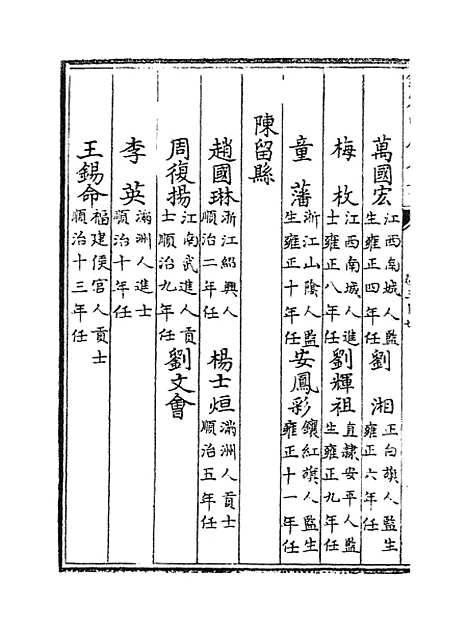 萬國宏 江西南城人監生雍正四年任 劉湘 正白旗人監生雍正六年任
梅枚 江西南城人進士雍正八年任 劉輝祖 直隸安平人監生雍正九年任
童藩 浙江山陰人監生雍正十年任 安鳳彩 鑲紅旗人監生雍正十一年任
陳留縣
趙國琳 浙江紹興人順治二年任 楊士烜 滿洲人貢士順治五年任
周復揚 江南武進人貢士順治九年任 劉文會
李英 滿洲人進士順治十年任
王錫命 福建侯官人貢士順治十三年任